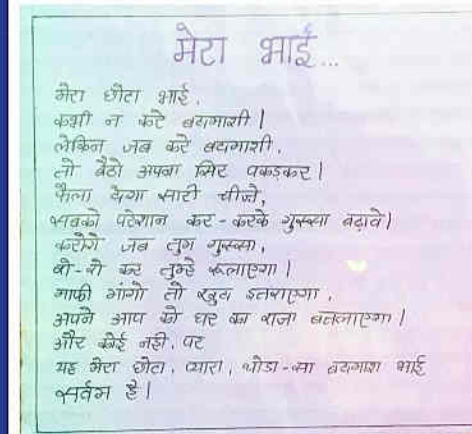 मेरा भाई...
मेरा छोटा भाई,
कभी न करे बदमाशी।
लेकिन जब करे बदमाशी,
तो बैठो अपना सिर पकड़कर।
फैला देगा सारी चीजे,
सबको परेशान कर-करके गुस्सा बढ़ावे।
करोगे जब तुम गुस्सा,
रो-रो कर तुम्हे रूलाएगा।
माफी मांगो तो खुब इतराएगा,
अपने आप को घर का राजा बतलाएगा।
और कोई नही, पर
यह मेरा छोटा, प्यारा, थोडा-सा बदमाश भाई
सर्वम है।